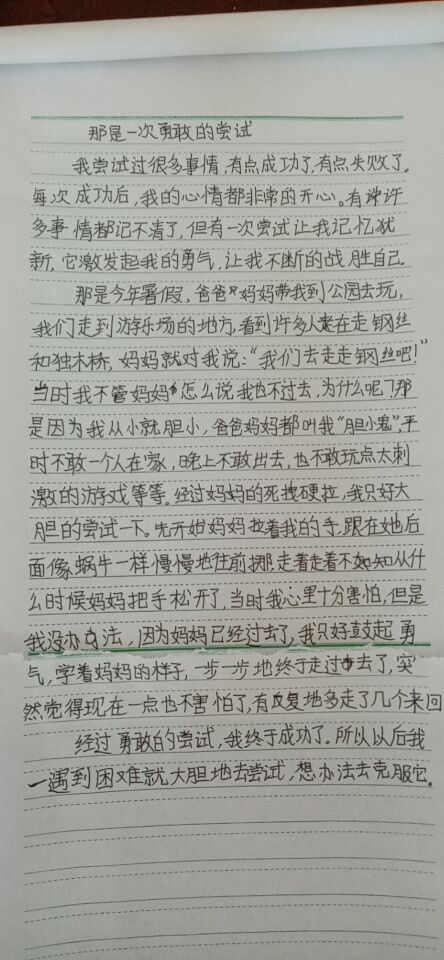 那是一次勇敢的尝试
我尝试过很多事情,有点成功了,有点失败了。
每次成功后,我的心情都非常的开心。有许许
多事情都记不清了,但有一次尝试让我记忆犹
新,它激发起我的勇气,让我不断的战胜自己。
那是今年暑假,爸爸妈妈带我到公园去玩,
我们走到游乐场的地方,看到许多人在走钢丝
和独木桥,妈妈就对我说:“我们去走走钢丝吧!”
当时我不管妈妈怎么说我也不过去,为什么呢?那
是因为我从小就胆小,爸爸妈妈都叫我“胆小鬼”,平
时不敢一个人在家,晚上不敢出去,也不敢玩点太刺
激的游戏等等。经过妈妈的死拽硬拉,我只好大
胆的尝试一下。先开始妈妈拉着我的手,跟在她后
面像蜗牛一样慢慢地往前挪,走着走着不知从什
么时候妈妈把手松开了,当时我心里十分害怕,但是
我没办法,因为妈妈已经过去了,我只好鼓起勇
气,学着妈妈的样子,一步一步地终于走过去了,突
然觉得现在一点也不害怕了,有反复地多走了几个来回
经过勇敢的尝试,我终于成功了。所以以后我
一遇到困难就大胆地去尝试,想办法去克服它。